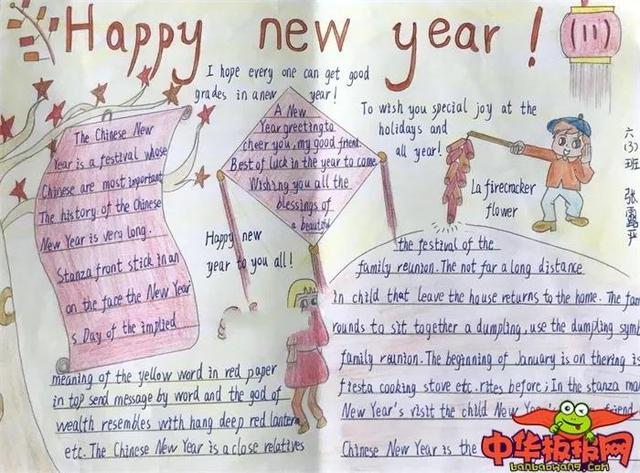 Happy new year!
(11)
I hope every one can get good
grades in a new year!
To wish you special joy at the
holidays and
all year!
La firecracker
flower
六(3)班 张
The Chinese New
Year is a festival whose
Chinese are most important
The history of the Chinese
New Year is very long.
Stanza front stick in an
on the face the New Year
s Day of the implied
meaning of the yellow word in red paper
in top send message by word and the god of
wealth resembles with hang deep red lantern
etc. The Chinese New Year is a close relatives
A New
Year greeting to
cheer you, my good friend.
Best of luck in the year to come
Wishing you all the
blessings of
a beautiful
Happy new
year to you all!
the festival of the
family reunion. The not far a long distance
in child that leave the house returns to the home. The
rounds to sit together a dumpling, use the dumpling
family reunion. The beginning of January is on thering is
fiesta cooking stove etc. rites before; In the stanza
New Year's visit the child New
Chinese New Year is the
中华板报网
banbaowang.com